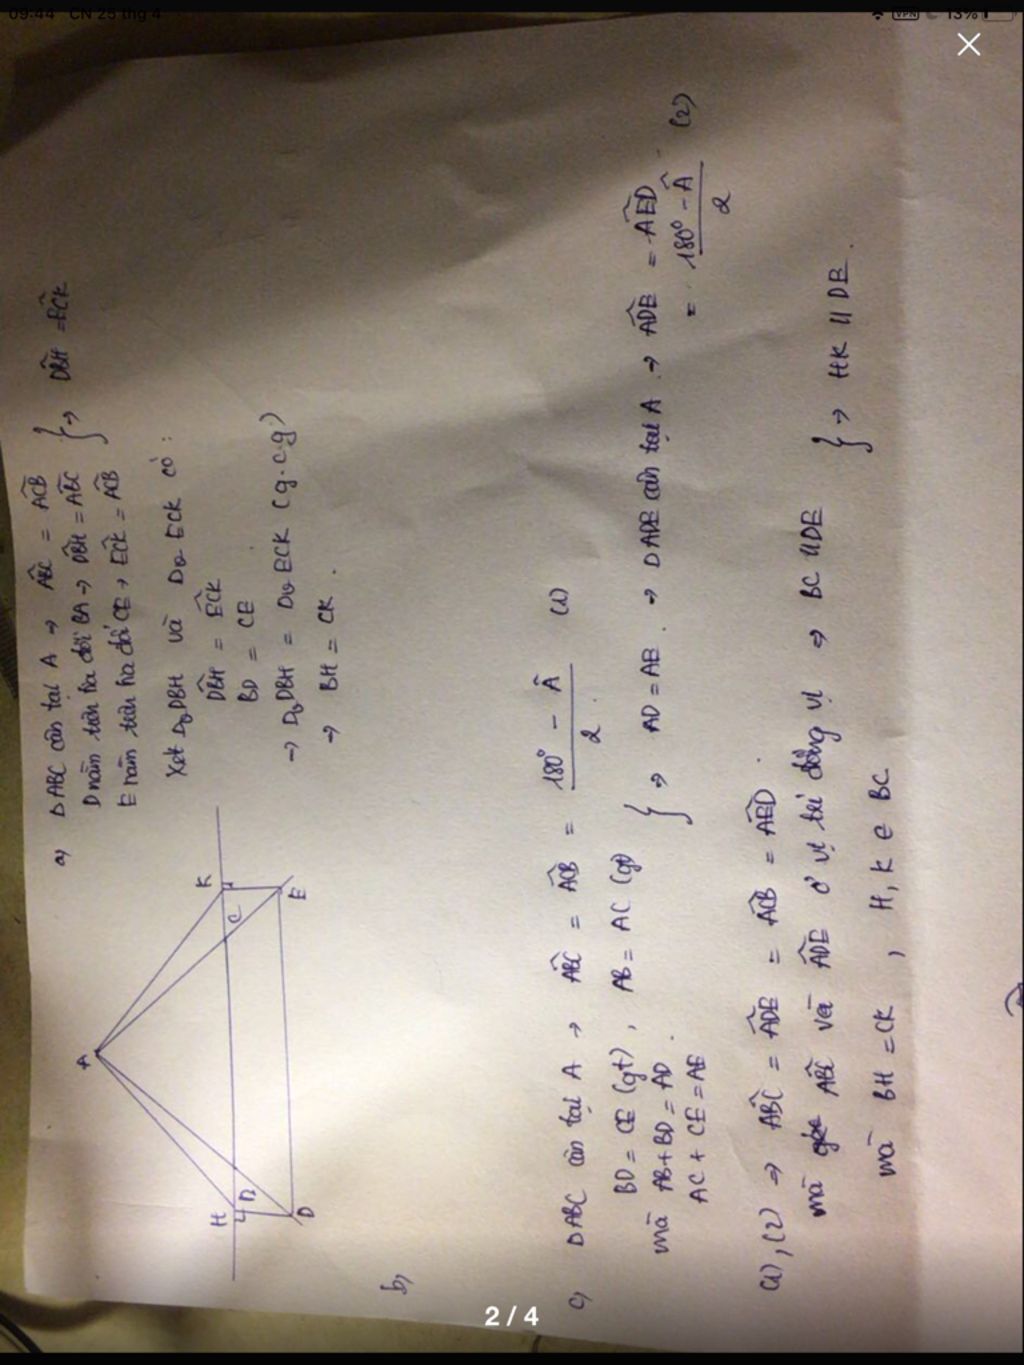 09:44 CN 25 thg 4
VPN 13%
a) ΔABC cân tại A → ABĈ = AĈB
D nằm trên tia đối BA → DB̂H = AB̂C
E nằm trên tia đối CE → EĈK = AĈB
} → DB̂H = EĈK
Xét Δv DBH và Δv ECK có:
DB̂H = EĈK
BD = CE
→ Δv DBH = Δv ECK (g.c.g)
→ BH = CK.
A
H
B
D
K
C
E
b)
c) ΔABC cân tại A → AB̂C = AĈB = (180° - Â)/2 (1)
BD = CE (gt), AB = AC (gt)
mà AB + BD = AD.
AC + CE = AE
} → AD = AE. → ΔADE cân tại A → AD̂E = AÊD
= (180° - Â)/2 (2)
(1), (2) → AB̂C = AD̂E = AĈB = AÊD.
mà AB̂C và AD̂E ở vị trí đồng vị → BC // DE
mà BH = CK, H, K ∈ BC
} → HK // DE.
2 / 4